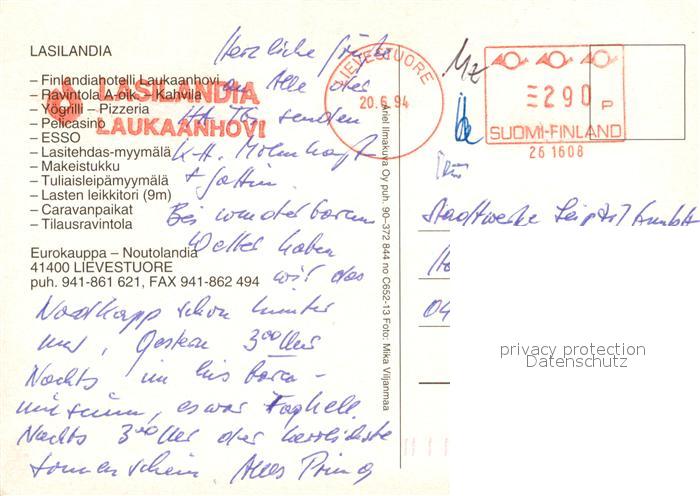 LASILANDIA
– Finlandiahotelli Laukaanhovi
– Ravintola A-oik. – Kahvila
– Yögrilli – Pizzeria
– Pelicasino
– ESSO
– Lasitehdas-myymälä
– Makeistukku
– Tuliaisleipämyymälä
– Lasten leikkitori (9m)
– Caravanpaikat
– Tilausravintola
Eurokauppa – Noutolandia
41400 LIEVESTUORE
puh. 941-861 621, FAX 941-862 494
LASILANDIA
LAUKAANHOVI
Herzliche Grüße
an Alle der
senden
K-H.
+ Gattin.
Bei wunderbarem
Wetter haben
wir das
Nordkapp schon hinter
uns, Gestern 3 00 Uhr
Nachts im
es war Taghell.
Nachts 3 00 Uhr der herrlichste
Sonnenschein. Alles Prima
Ariel Ilmakuva Oy puh. 90-372 844 no C652-13 Foto: Mika Viljanmaa
LIEVESTUORE
20.6.94
290 P
SUOMI-FINLAND
261608
Stadtwerke Leipzig GmbH
04
privacy protection
Datenschutz